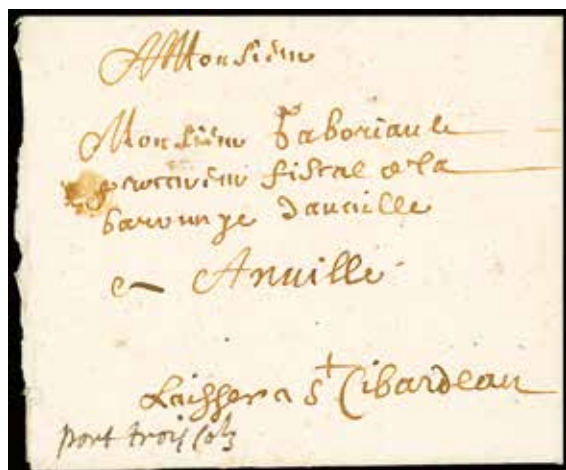 A Monsieur
Monsieur Gaboriault
procureur fiscal de la
baronnye danville
a Anville
Laisser a St Cibardeau
port trois solz